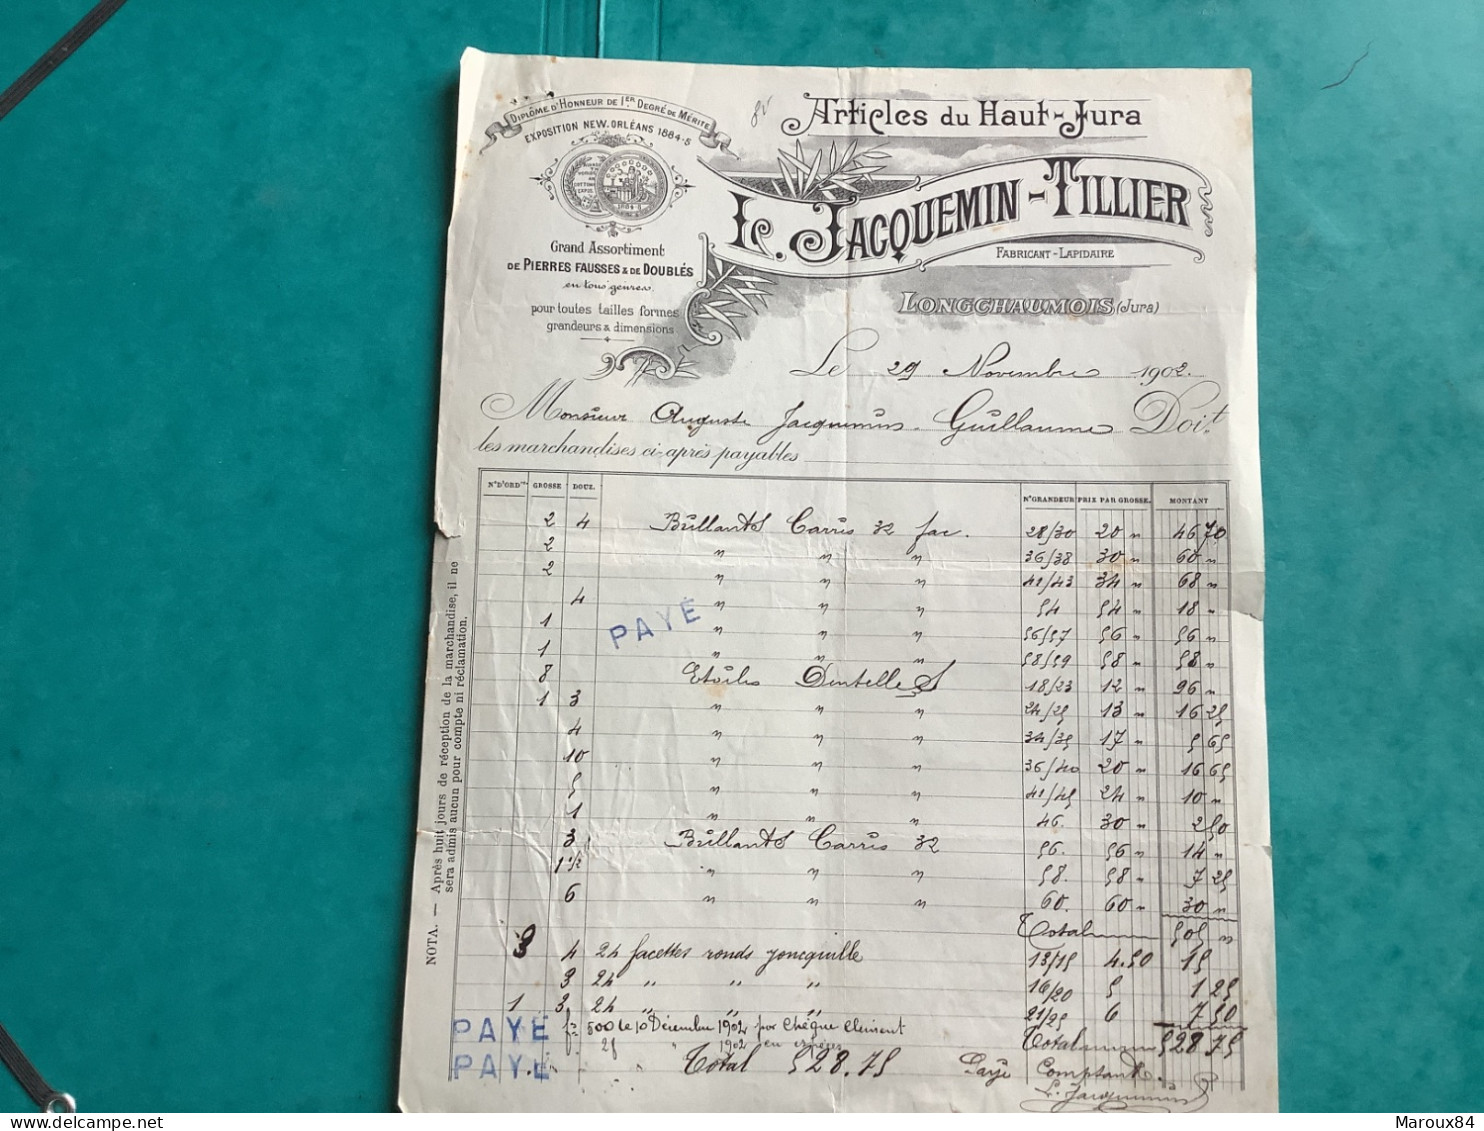 Diplôme d'Honneur de 1er Degré de Mérite
Exposition New. Orléans 1884-5
Grand Assortiment
de Pierres Fausses & de Doublés
en tous genres
pour toutes tailles formes
grandeurs & dimensions
Articles du Haut-Jura
L. Jacquemin-Tillier
Fabricant-Lapidaire
Longchaumois (Jura)
Le 29 Novembre 1902.
Monsieur Auguste Jacquemin-Guillaume Doit
les marchandises ci-après payables
N° d'ord. Grosse Douz. N° Grandeur Prix par Grosse. Montant
2 4 Brillants Carrés 32 fac. 28/30 20 " 46 70
2 " " " 36/38 30 " 60 "
2 " " " 41/43 34 " 68 "
4 " " " 54 54 " 18 "
1 " " " 56/57 56 " 56 "
1 " " " 58/59 58 " 58 "
8 Etoiles Dentelles 18/23 12 " 96 "
1 3 " " " 24/25 13 " 16 25
4 " " " 34/35 17 " 5 65
10 " " " 36/40 20 " 16 65
5 " " " 41/45 24 " 10 "
1 " " " 46. 30 " 2 50
3 Brillants Carrés 32 56. 56 " 14 "
1 1/2 " " " 58. 58 " 7 25
6 " " " 60. 60 " 30 "
Total 505 "
3 4 24 facettes ronds jonquille 13/15 4.50 15
3 24 " " " 16/20 5 1 25
1 3 24 " " " 21/25 6 7 50
500 le 10 Décembre 1902 par Chèque Clément Total 528 75
25 " 1902 en espèces
Total 528.75 Payé Comptant.
L. Jacquemin
PAYÉ
PAYÉ
PAYÉ
NOTA. — Après huit jours de réception de la marchandise, il ne
sera admis aucun pour compte ni réclamation.
Maroux84